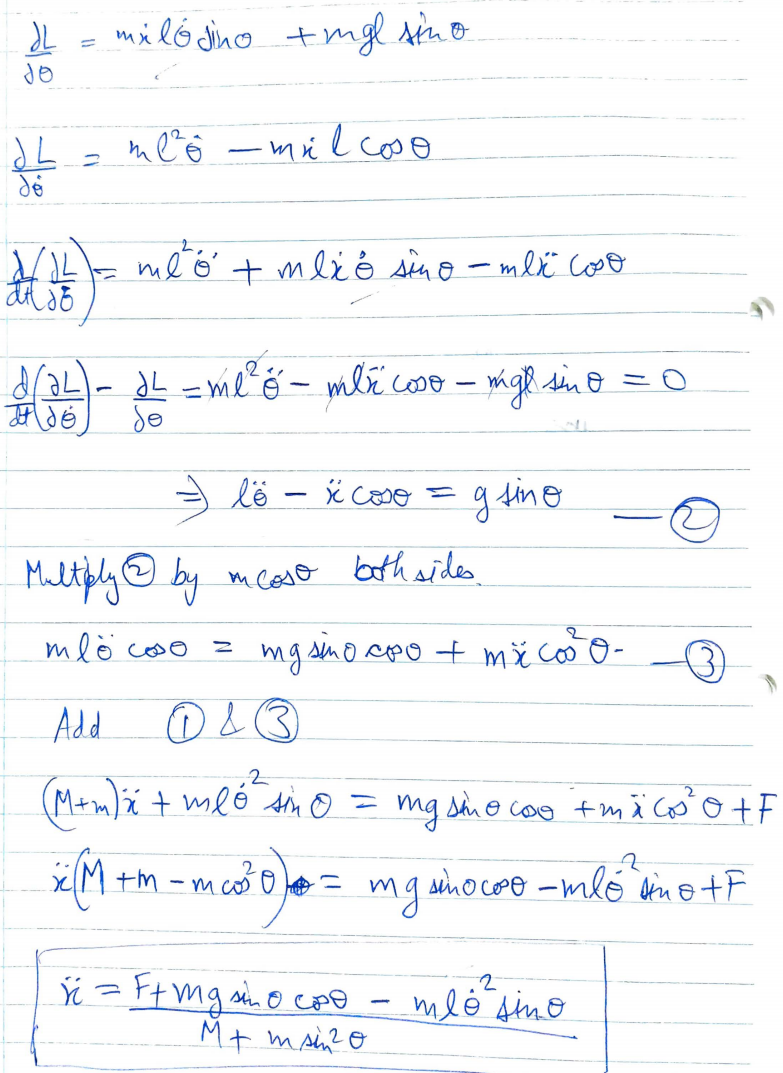 ∂L/∂θ = mẋlθ̇ sinθ + mgl sinθ
∂L/∂θ̇ = ml²θ̇ − mẋl cosθ
d/dt(∂L/∂θ̇) = ml²θ̈ + mlẋθ̇ sinθ − mlẍ cosθ
d/dt(∂L/∂θ̇) − ∂L/∂θ = ml²θ̈ − mlẍ cosθ − mgl sinθ = 0
⇒ lθ̈ − ẍ cosθ = g sinθ — ②
Multiply ② by m cosθ both sides.
mlθ̈ cosθ = mg sinθ cosθ + mẍ cos²θ — ③
Add ① & ③
(M+m)ẍ + mlθ̇² sinθ = mg sinθ cosθ + mẍ cos²θ + F
ẍ(M + m − m cos²θ) = mg sinθ cosθ − mlθ̇² sinθ + F
ẍ = (F + mg sinθ cosθ − mlθ̇² sinθ) / (M + m sin²θ)